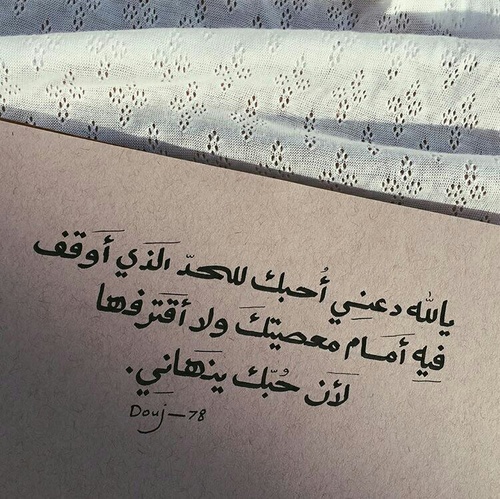 يالله دعني أُحبك للحدّ الذي أوقف
فيه أمام معصيتك ولا أقترفها
لأن حُبّك ينهاني.
Douj—78